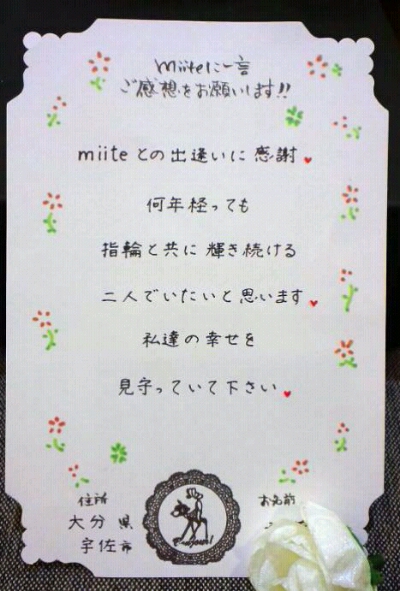 miiteに一言
ご感想をお願いします!!
miite との出逢いに感謝♥
何年経っても
指輪と共に輝き続ける
二人でいたいと思います♥
私達の幸せを
見守っていて下さい♥
住所
大分県
宇佐市
お名前